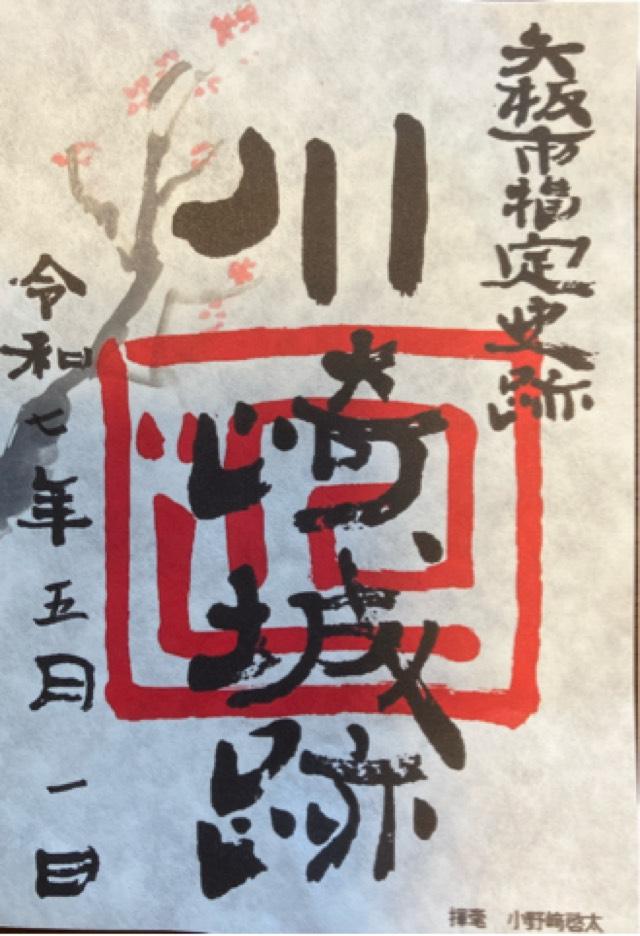 矢板市指定史跡
川崎城跡
令和七年五月一日
揮毫 小野﨑啓太